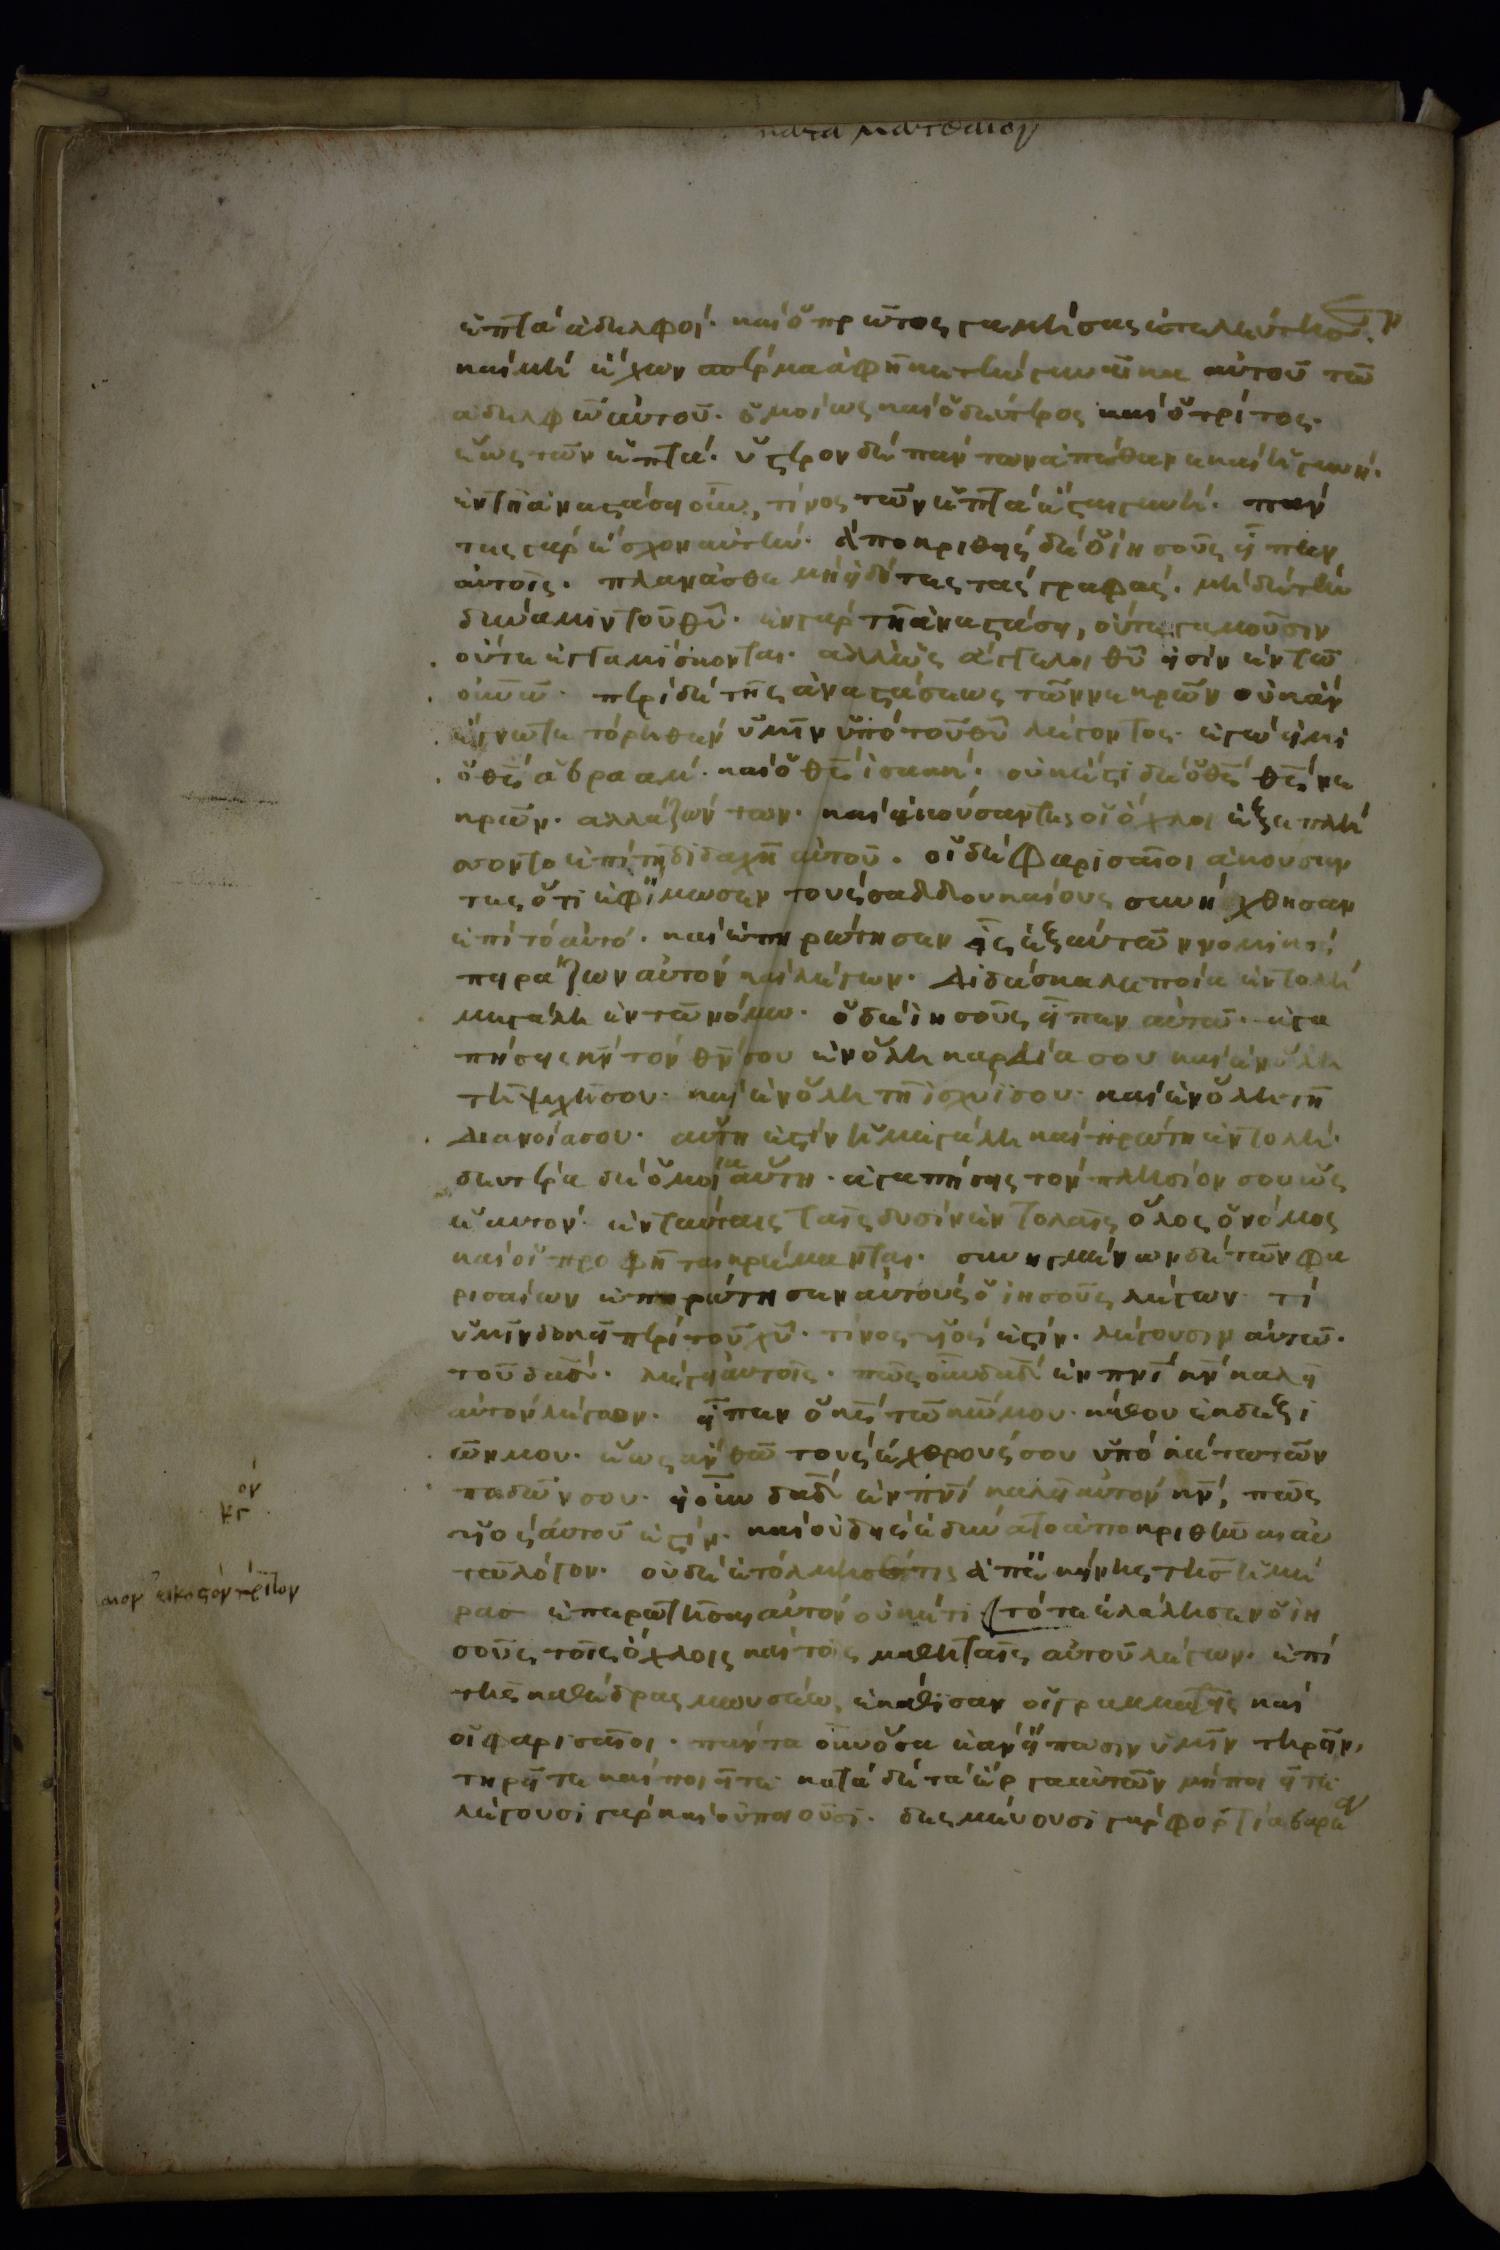 κατα ματθαιον
ἑπτὰ ἀδελφοί· καὶ ὁ πρῶτος γαμήσας ἐτελεύτησεν·
καὶ μὴ ἔχων σπέρμα ἀφῆκε τὴν γυναῖκα αὐτοῦ τῶ
ἀδελφῶ αὐτοῦ· ὁμοίως καὶ ὁ δεύτερος καὶ ὁ τρίτος·
ἕως τῶν ἑπτά· ὕστερον δὲ πάντων ἀπέθανε καὶ ἡ γυνή·
ἐν τῆ ἀναστάσει οὖν, τίνος τῶν ἑπτὰ ἔσται γυνή· πάν
τες γὰρ ἔσχον αὐτήν· ἀποκριθεὶς δὲ ὁ ἰησοῦς εἶπεν
αὐτοῖς· πλανᾶσθε μὴ εἰδότες τὰς γραφάς· μὴ δὲ τὴν
δύναμιν τοῦ θῦ· ἐν γὰρ τῆ ἀναστάσει, οὔτε γαμοῦσιν
οὔτε ἐκγαμίσκονται· ἀλλ' ὡς ἄγγελοι θῦ εἰσὶν ἐν τῶ
οὐνῶ· περὶ δὲ τῆς ἀναστάσεως τῶν νεκρῶν οὐκ ἀν
έγνωτε τὸ ῥηθὲν ὑμῖν ὑπὸ τοῦ θῦ λέγοντος· ἐγώ εἰμι
ὁ θς ἀβραάμ· καὶ ὁ θς ἰσαάκ· οὐκ ἔστι δὲ ὁ θς θς νε
κρῶν· ἀλλὰ ζώντων· καὶ ἀκούσαντες οἱ ὄχλοι ἐξεπλή
σσοντο ἐπὶ τῆ διδαχῆ αὐτοῦ· οἱ δὲ φαρισαῖοι ἀκούσαν
τες ὅτι ἐφίμωσεν τοὺς σαδδουκαίους συνήχθησαν
ἐπὶ τὸ αὐτό· καὶ ἐπηρώτησεν εἷς ἐξ αὐτῶν νομικὸς
πειράζων αὐτὸν καὶ λέγων· διδάσκαλε ποία ἐντολὴ
μεγάλη ἐν τῶ νόμω· ὁ δὲ ἰησοῦς εἶπεν αὐτῶ· ἀγα
πήσεις κν τὸν θν σου ἐν ὅλη καρδία σου καὶ ἐν ὅλη
τῆ ψυχῆ σου· καὶ ἐν ὅλη τῆ ἰσχύϊ σου· καὶ ἐν ὅλη τῆ
διανοία σου· αὕτη ἐστὶν ἡ μεγάλη καὶ πρώτη ἐντολή·
δευτέρα δὲ ὁμοία αὕτη· ἀγαπήσεις τὸν πλησίον σου ὡς
ἑαυτόν· ἐν ταύταις ταῖς δυσὶν ἐντολαῖς ὅλος ὁ νόμος
καὶ οἱ προφῆται κρέμανται· συνηγμένων δὲ τῶν φα
ρισαίων ἐπηρώτησεν αὐτοὺς ὁ ἰησοῦς λέγων· τί
ὑμῖν δοκεῖ περὶ τοῦ χῦ· τίνος υἱός ἐστιν· λέγουσιν αὐτῶ·
τοῦ δαδ· λέγει αὐτοῖς· πῶς οὖν δαδ ἐν πνι κν καλεῖ
αὐτὸν λέγων· εἶπεν ὁ κς τῶ κω μου· κάθου ἐκ δεξι
ῶν μου· ἕως ἂν θῶ τοὺς ἐχθρούς σου ὑποκάτω τῶν
ποδῶν σου· εἰ οὖν δαδ ἐν πνι καλεῖ αὐτὸν κν, πῶς
υἱὸς αὐτοῦ ἐστιν· καὶ οὐδεὶς ἐδύνατο ἀποκριθῆναι αὐ
τῶ λόγον· οὐδὲ ἐτόλμησέ τις ἀπ' ἐκείνης τῆς ἡμέ
ρας ἐπερωτῆσαι αὐτὸν οὐκέτι· τότε ἐλάλησεν ὁ ἰη
σοῦς τοῖς ὄχλοις καὶ τοῖς μαθηταῖς αὐτοῦ λέγων· ἐπὶ
τῆς καθέδρας μωυσέως ἐκάθισαν οἱ γραμματεῖς καὶ
οἱ φαρισαῖοι· πάντα οὖν ὅσα ἐὰν εἴπωσιν ὑμῖν τηρεῖν,
τηρεῖτε καὶ ποιεῖτε· κατὰ δὲ τὰ ἔργα αὐτῶν μὴ ποιεῖτε
λέγουσι γὰρ καὶ οὐ ποιοῦσι· δεσμεύουσι γὰρ φορτία βαρέα
κγ ον
εἰκοστὸν τρίτον